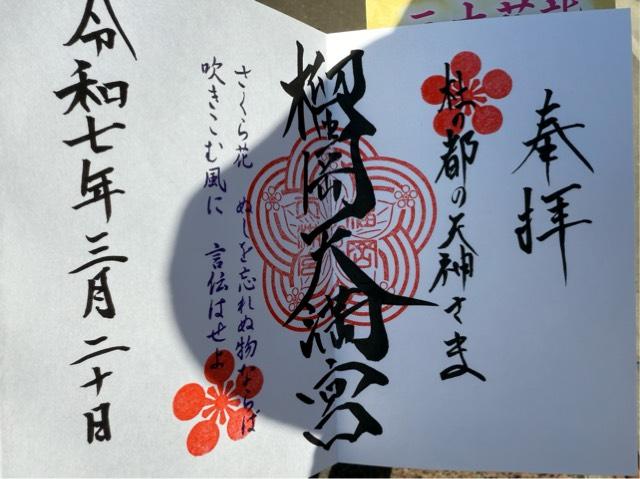 奉拝
杜の都の天神さま
榴岡天満宮
さくら花 ぬしを忘れぬ物ならば
吹きこむ風に 言伝はせよ
令和七年三月二十日